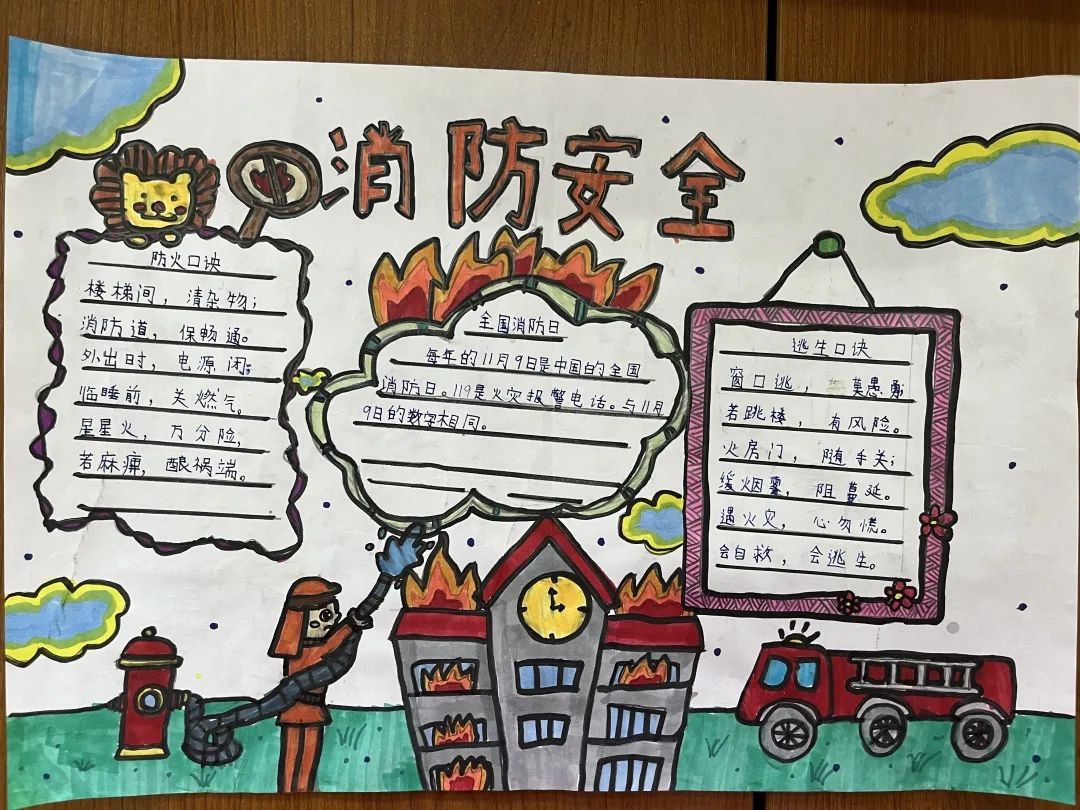 消防安全
防火口诀
楼梯间，清杂物；
消防道，保畅通。
外出时，电源闭；
临睡前，关燃气。
星星火，万分险，
若麻痹，酿祸端。
全国消防日
每年的11月9日是中国的全国
消防日。119是火灾报警电话。与11月
9日的数字相同。
逃生口诀
窗口逃，莫愚勇
若跳楼，有风险。
火房门，随手关；
缓烟雾，阻蔓延。
遇火灾，心勿慌。
会自救，会逃生。